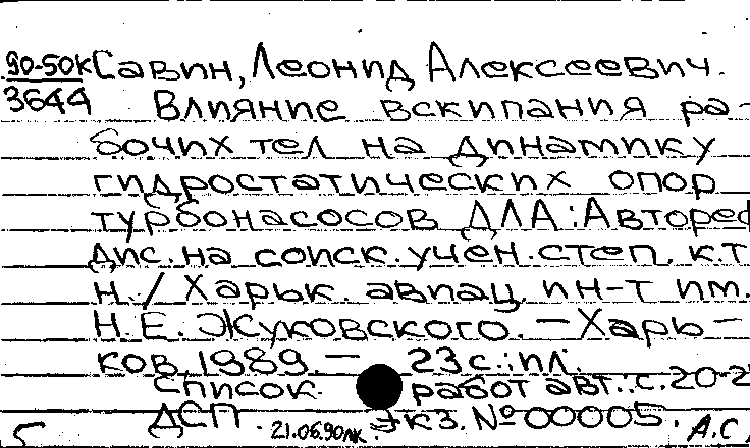 90-50к Савин, Леонид Алексеевич.
3644 Влияние вскипания ра-
бочих тел на динамику
гидростатических опор
турбонасосов ДЛА: Автореф
дис. на соиск. учен. степ. к.т
н. / Харьк. авиац. ин-т им.
Н.Е. Жуковского. — Харь-
ков, 1989. — 23 с.: ил.
Список работ авт.: с. 20-2
ДСП. Экз. № 00005.
5 21.06.90 А.С